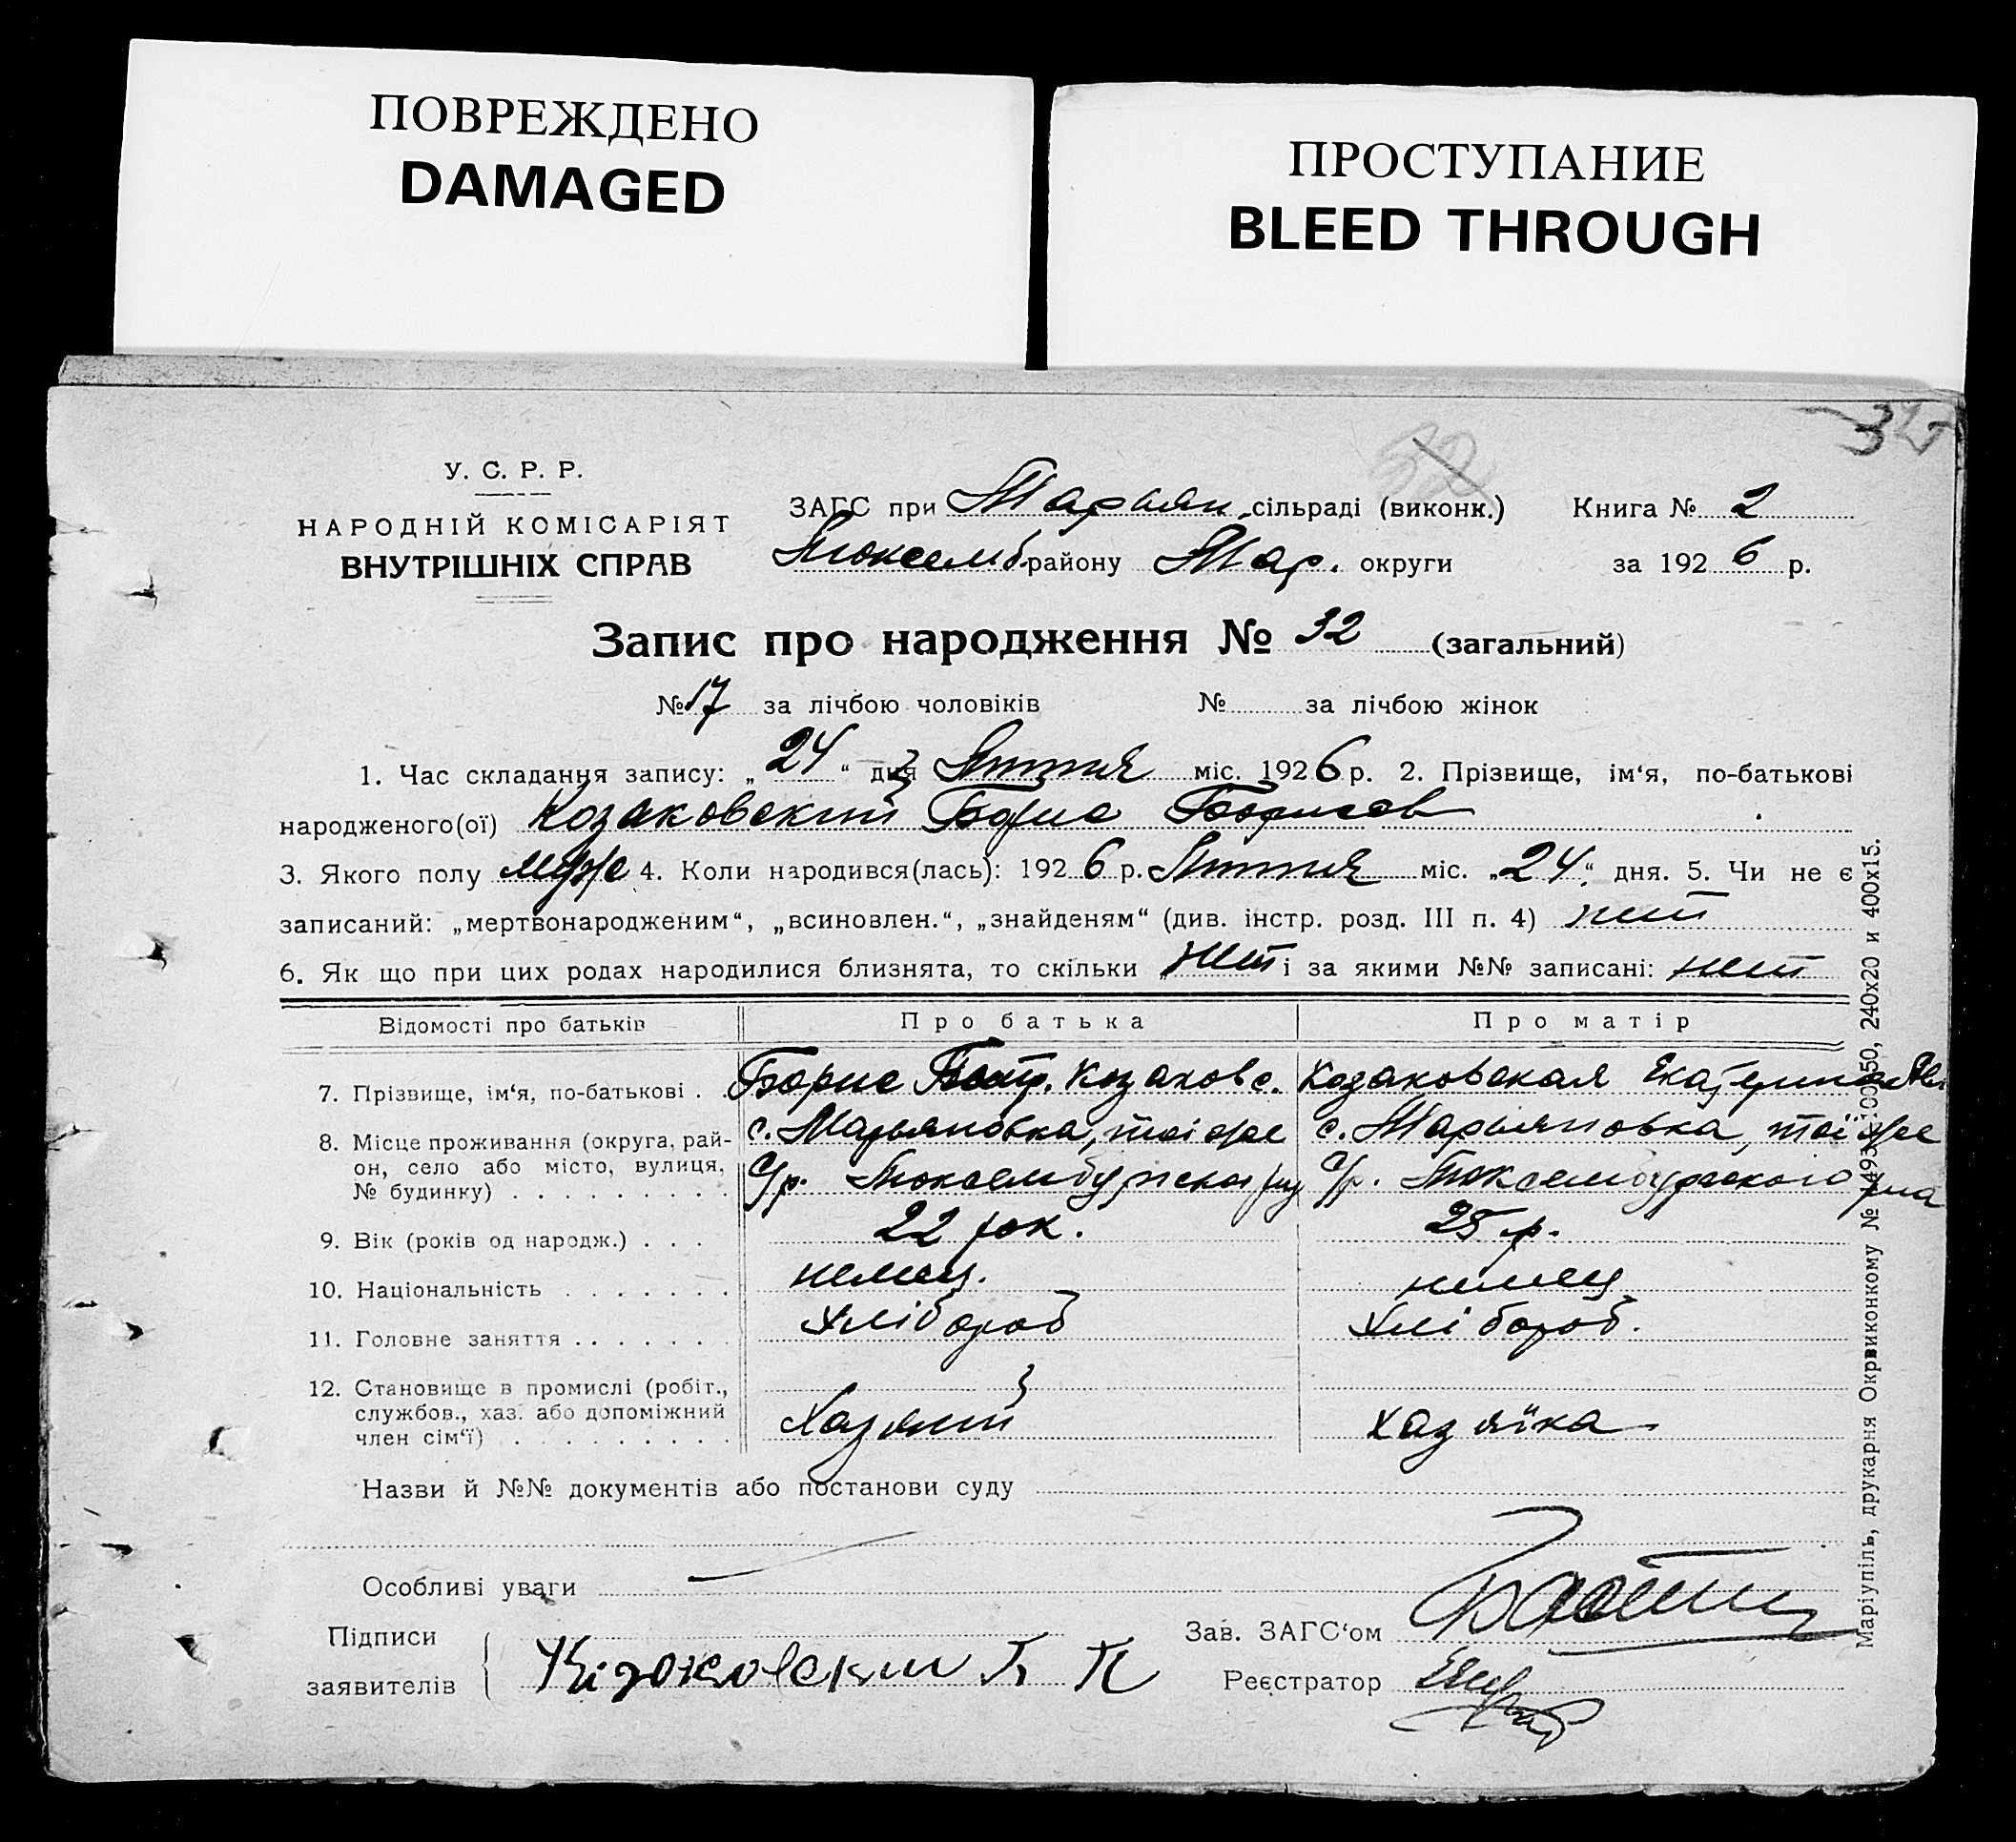 ПОВРЕЖДЕНО
DAMAGED
ПРОСТУПАНИЕ
BLEED THROUGH
32
У. С. Р. Р.
НАРОДНІЙ КОМІСАРІЯТ
ВНУТРІШНІХ СПРАВ
ЗАГС при Марьян. сільраді (виконк.)
Люксемб. району Мар. округи
Книга № 2
за 1926 р.
Запис про народження № 32 (загальний)
№ 17 за лічбою чоловіків № за лічбою жінок
1. Час складання запису: „24“ дня Липня міс. 1926 р. 2. Прізвище, ім‘я, по-батькові
народженого(ої) Козаковский Борис Борисов
3. Якого полу муж 4. Коли народився(лась): 1926 р. Липня міс. „24“ дня. 5. Чи не є
записаний: „мертвонародженим“, „всиновлен.“, „знайденям“ (див. інстр. розд. III п. 4) нет
6. Як що при цих родах народилися близнята, то скільки нет і за якими №№ записані: нет
Відомості про батьків Про батька Про матір
7. Прізвище, ім‘я, по-батькові . . Борис Петр. Козаковс. Козаковская Екатерина
8. Місце проживання (округа, рай-он, село або місто, вулиця, № будинку) . . . . . . . . .
с. Марьяновка, тоі же
с/р. Люксембургскоі
с. Марьяновка, тоі же
с/р. Люксембургского р-на
9. Вік (років од народж.) . . . 22 рок. 25 р.
10. Національність . . . . . . . немец. немец
11. Головне заняття . . . . . . . Хлібороб Хлібороб.
12. Становище в промислі (робіт., службов., хаз. або допоміжний член сім‘ї) . . . . . . . . . Хазяин хазяїка
Назви й №№ документів або постанови суду
Особливі уваги —
Підписи
заявителів Козаковский Б П
Зав. ЗАГС‘ом
Реєстратор
Маріупіль, друкарня Окрвиконкому № 240х20 и 400х15.